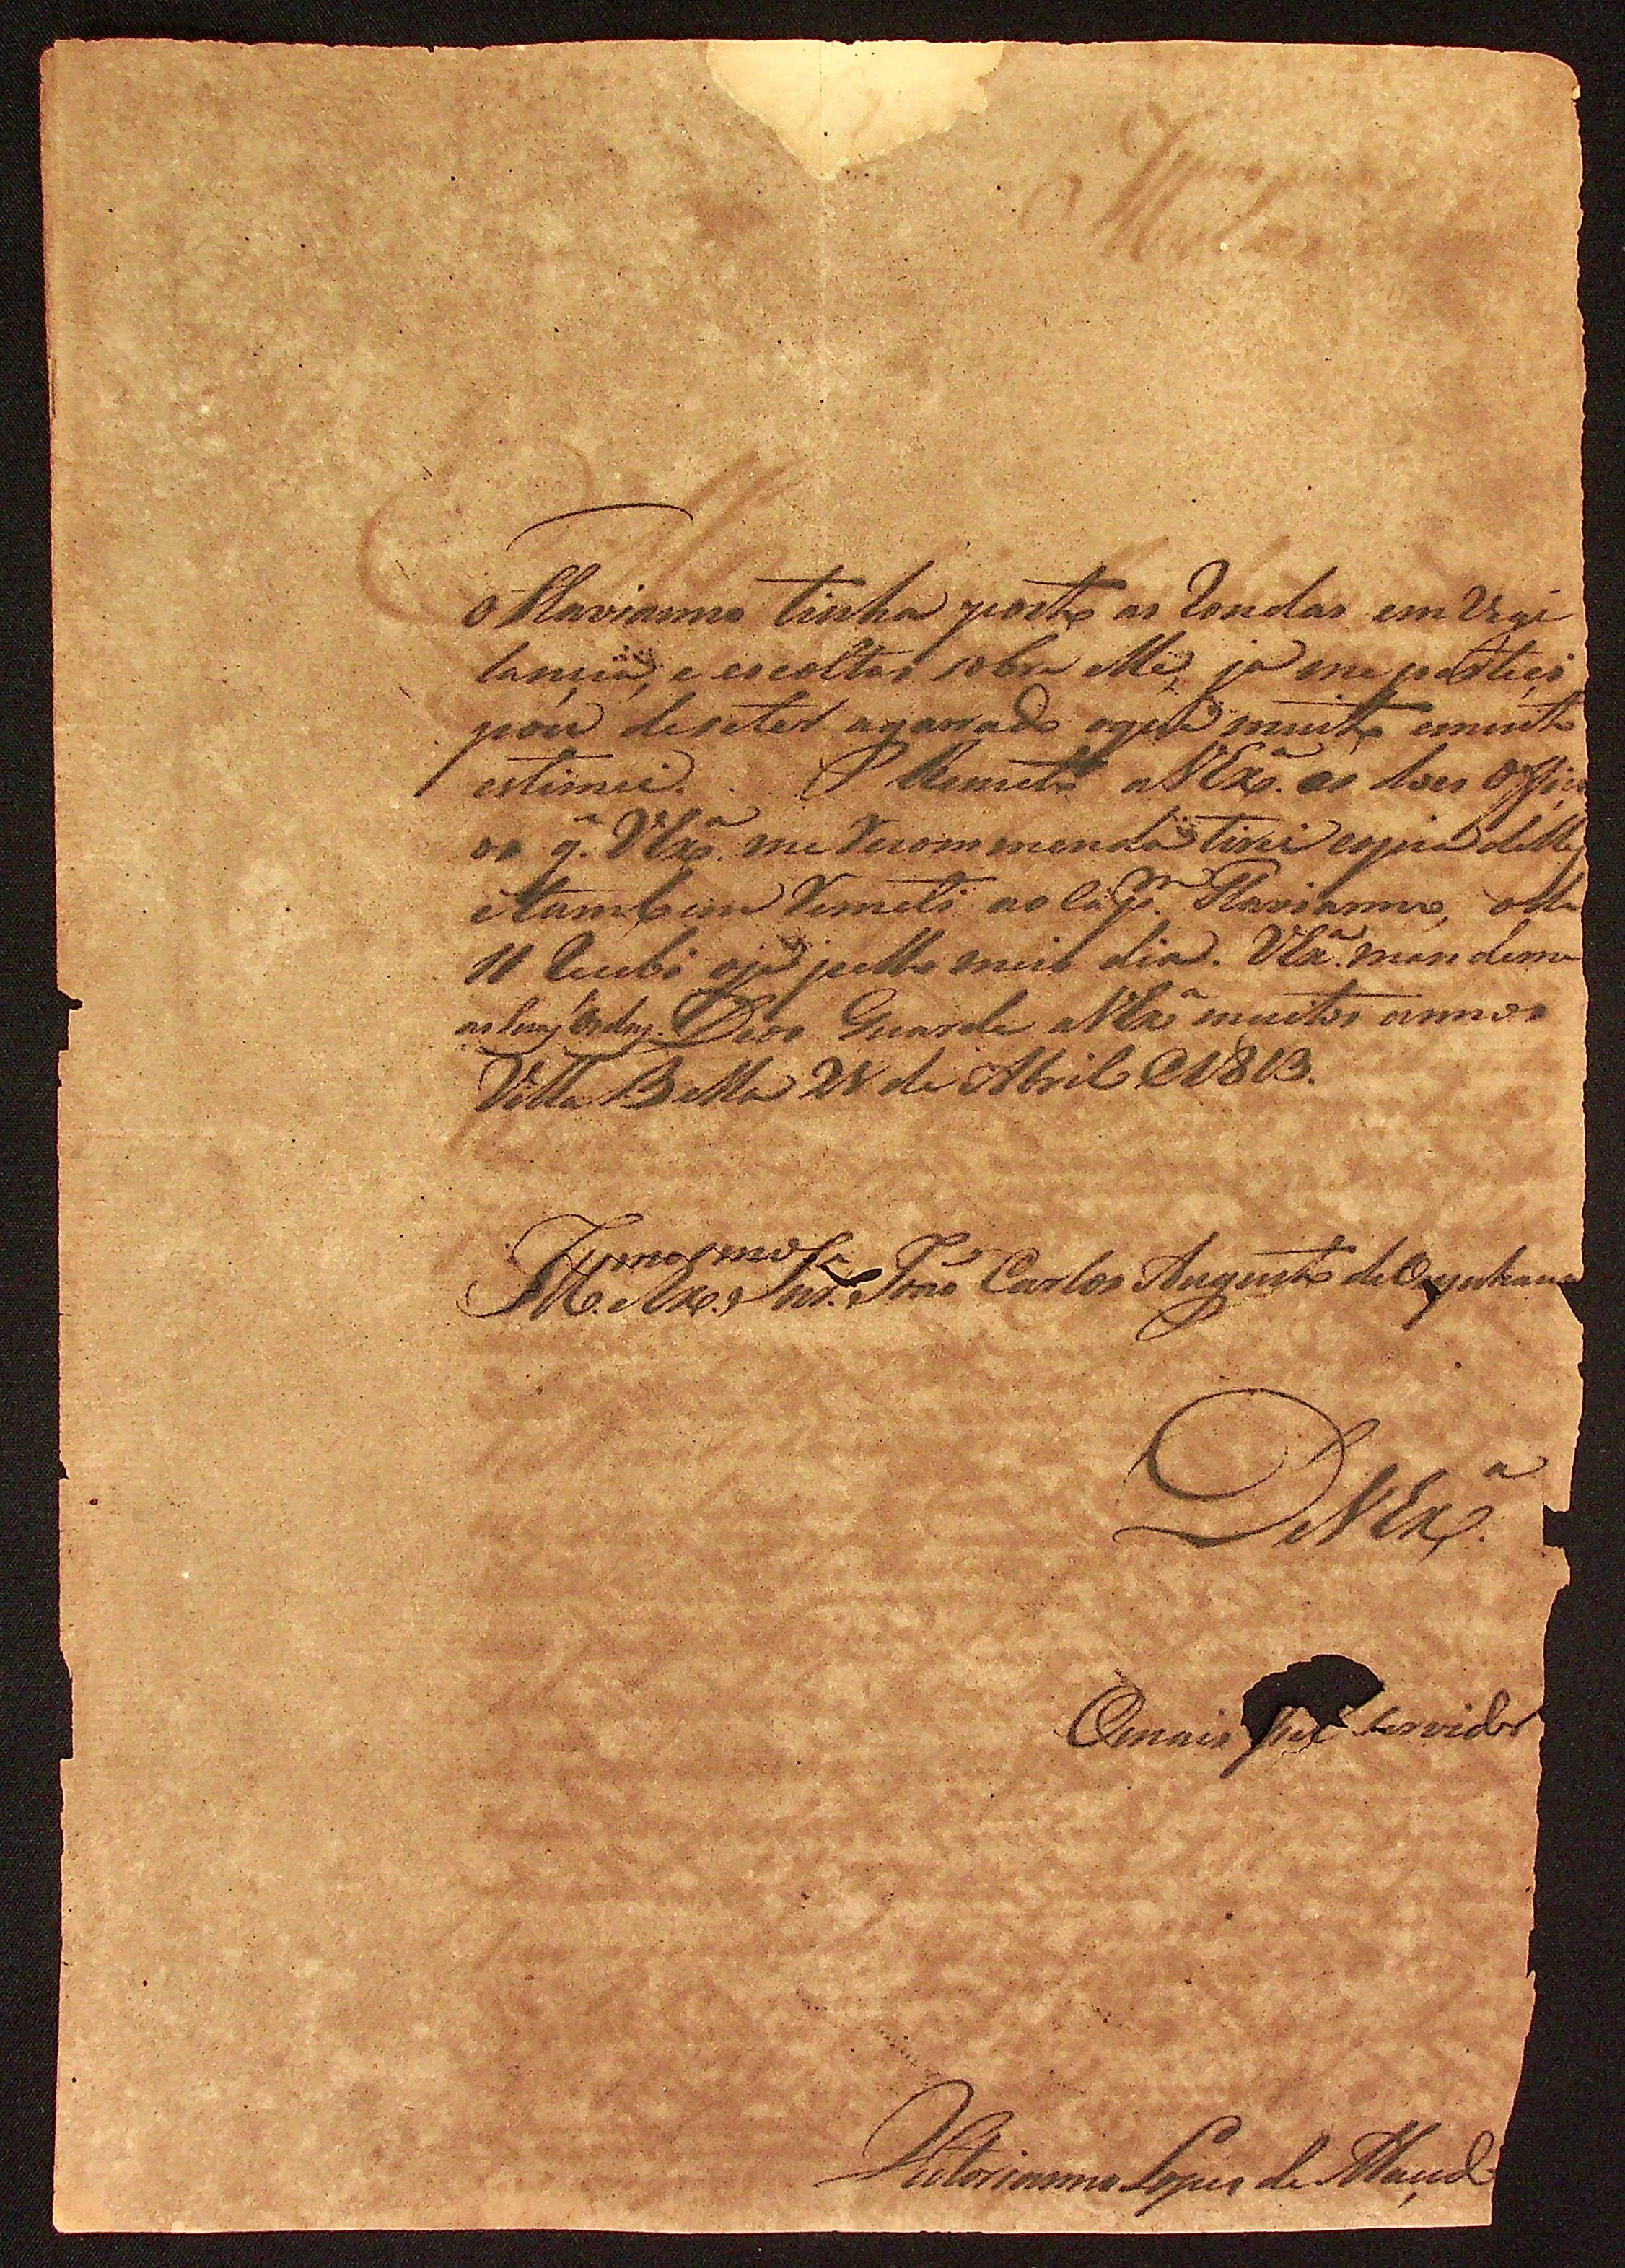 o Flavianno tinha posto as Rondas em Vigi
lancia, e escoltas sobre elle, ja me partici
pou deseter agarrado oque muito emuito
estimei. Remeto a VEx.ª os dois Offici
os q̃. VEx.ª me Recommenda tirei copia delles
etambem Remeti ao Cap.m Flavianno, elle
11 Recebi oje pello meio dia. VEx.ª mandeme
as suas Ordẽs. Deos Guarde a VEx.ª muitos annos
Villa Bella 28 de Abril e 1813.
Ill.mo e Ex.mo Snr. João Carlos Augusto de Oyenhaus
De VEx.ª
Omais fiel Servidor
Victorianno Lopes de Maced